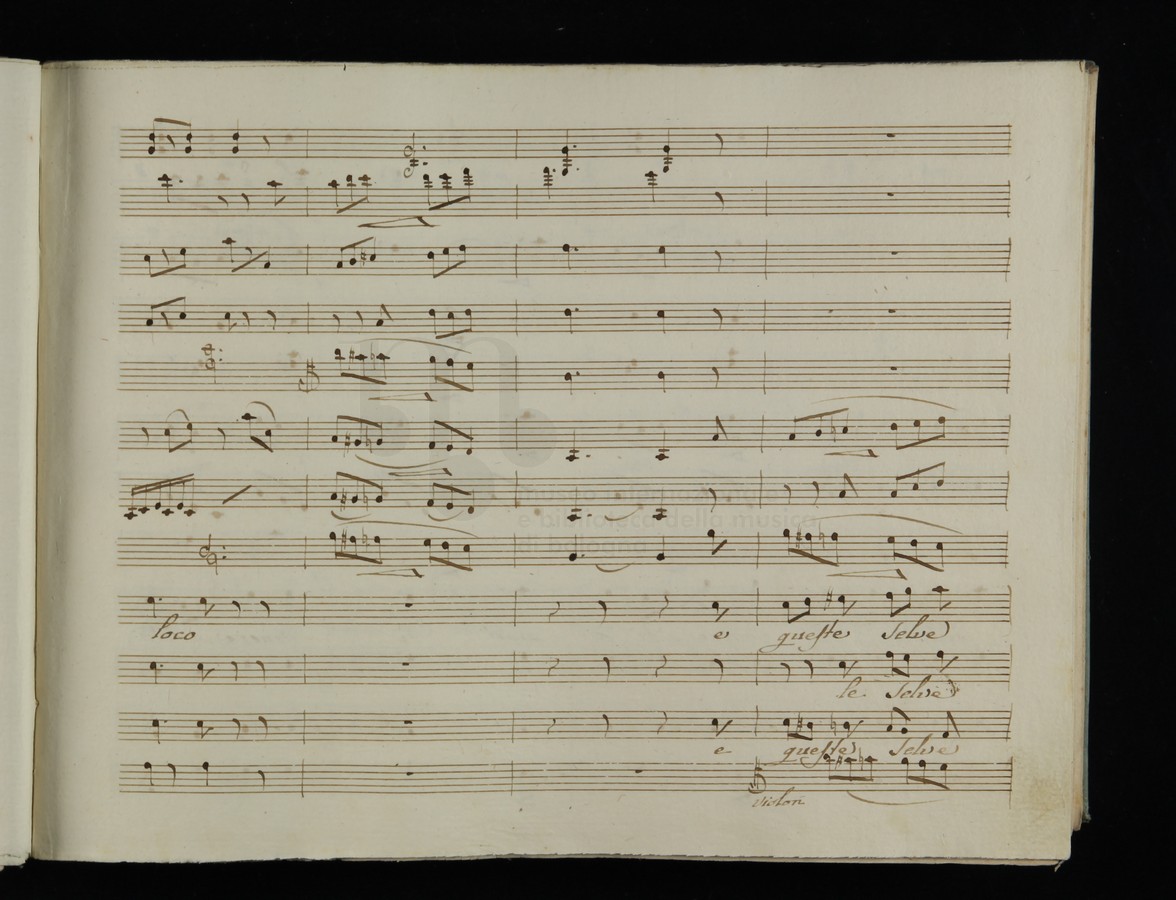 museo internazionale
e biblioteca della musica
di bologna
loco e queste selve
le selve
e queste selve
violon